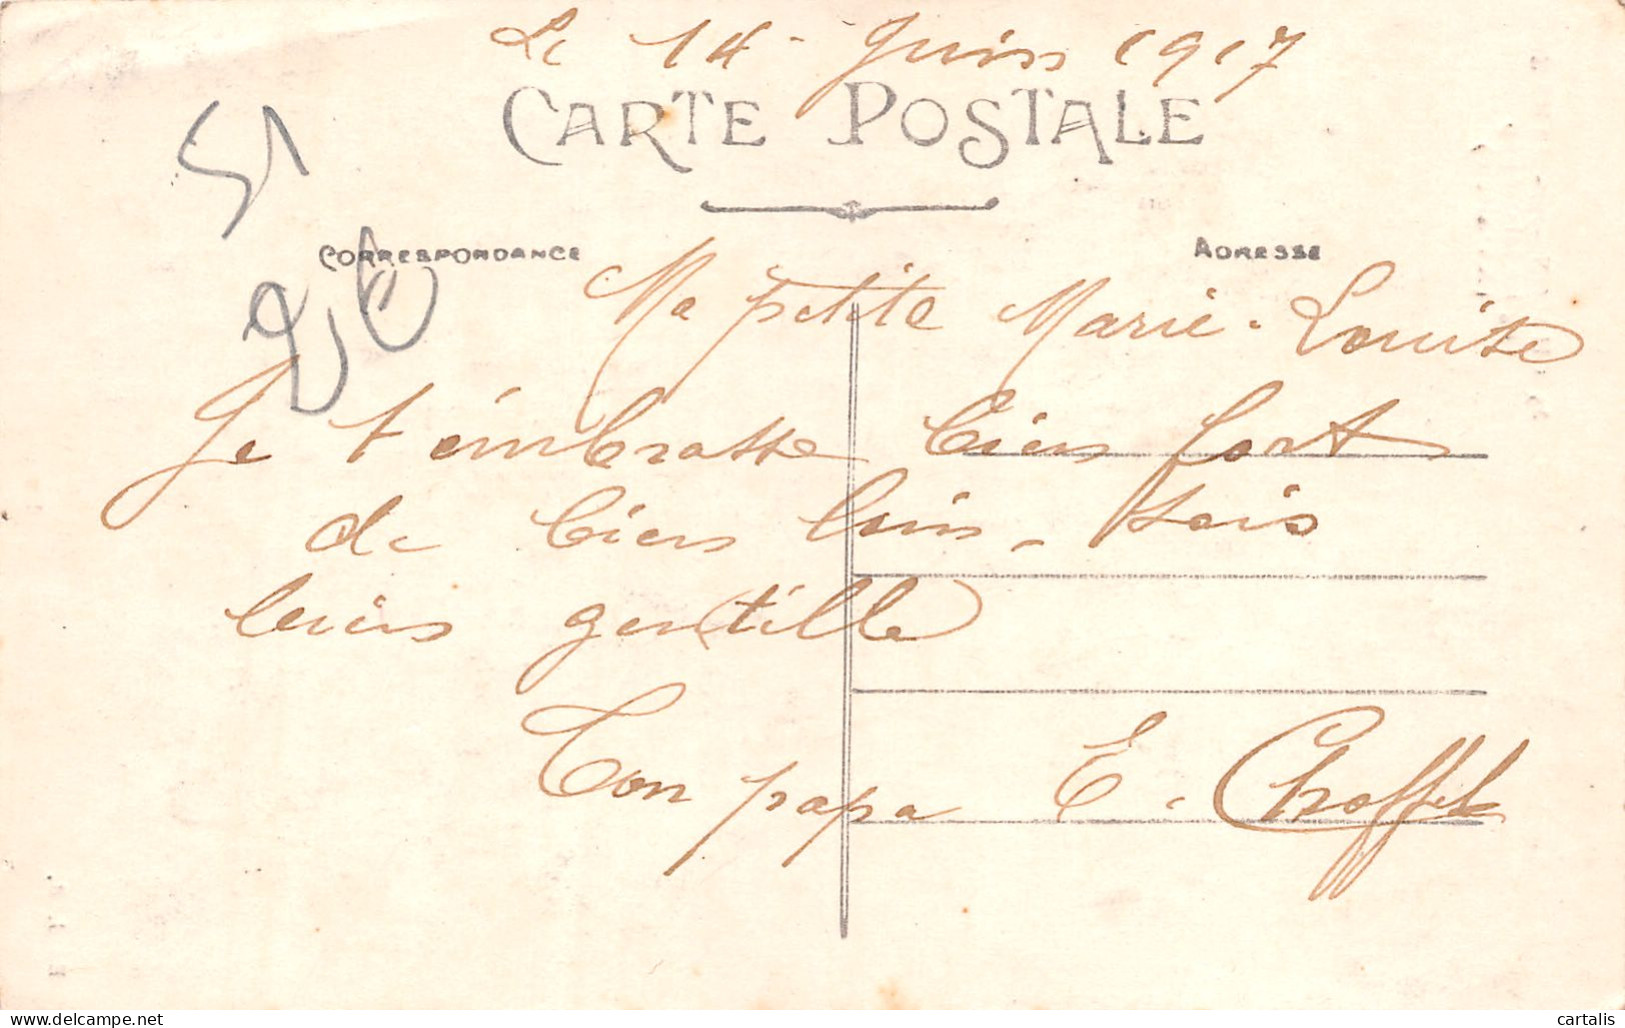 Le 14 - Juin 1917
CARTE POSTALE
51
CORRESPONDANCE
ADRESSE
Ma petite Marie-Louise
Je t'embrasse bien fort
de bien loin - sois
bien gentille
Ton papa E. Choffel
cartalis